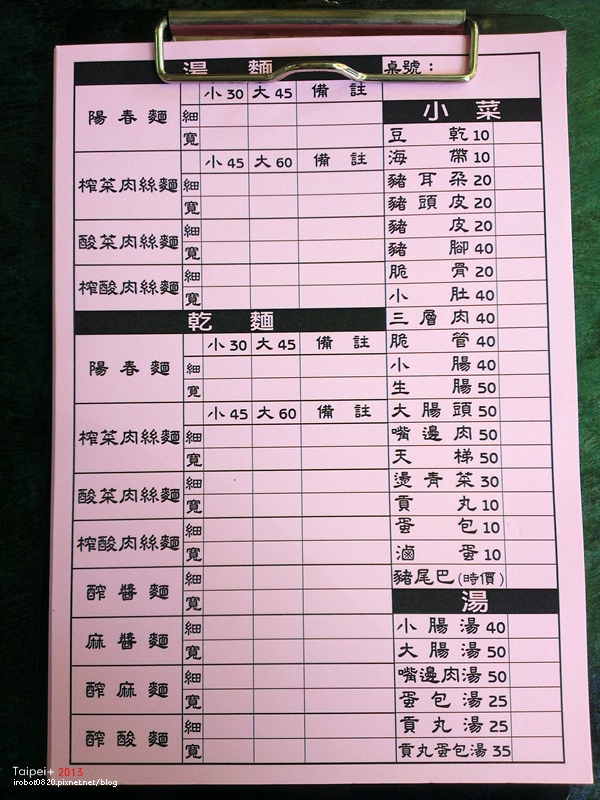 湯 麵
小30 大45 備 註
陽 春 麵 細
寬
小45 大60 備 註
榨菜肉絲麵 細
寬
酸菜肉絲麵 細
寬
榨酸肉絲麵 細
寬
乾 麵
小30 大45 備 註
陽 春 麵 細
寬
小45 大60 備 註
榨菜肉絲麵 細
寬
酸菜肉絲麵 細
寬
榨酸肉絲麵 細
寬
酢 醬 麵 細
寬
麻 醬 麵 細
寬
酢 麻 麵 細
寬
酢 酸 麵 細
寬
桌號：
小 菜
豆 乾 10
海 帶 10
豬 耳 朶 20
豬 頭 皮 20
豬 皮 20
豬 腳 40
脆 骨 20
小 肚 40
三 層 肉 40
脆 管 40
小 腸 40
生 腸 50
大 腸 頭 50
嘴 邊 肉 50
天 梯 50
燙 青 菜 30
貢 丸 10
蛋 包 10
滷 蛋 10
豬尾巴(時價)
湯
小 腸 湯 40
大 腸 湯 50
嘴邊肉湯 50
蛋 包 湯 25
貢 丸 湯 25
貢丸蛋包湯 35
Taipei+ 2013
irobot0820.pixnet.net/blog